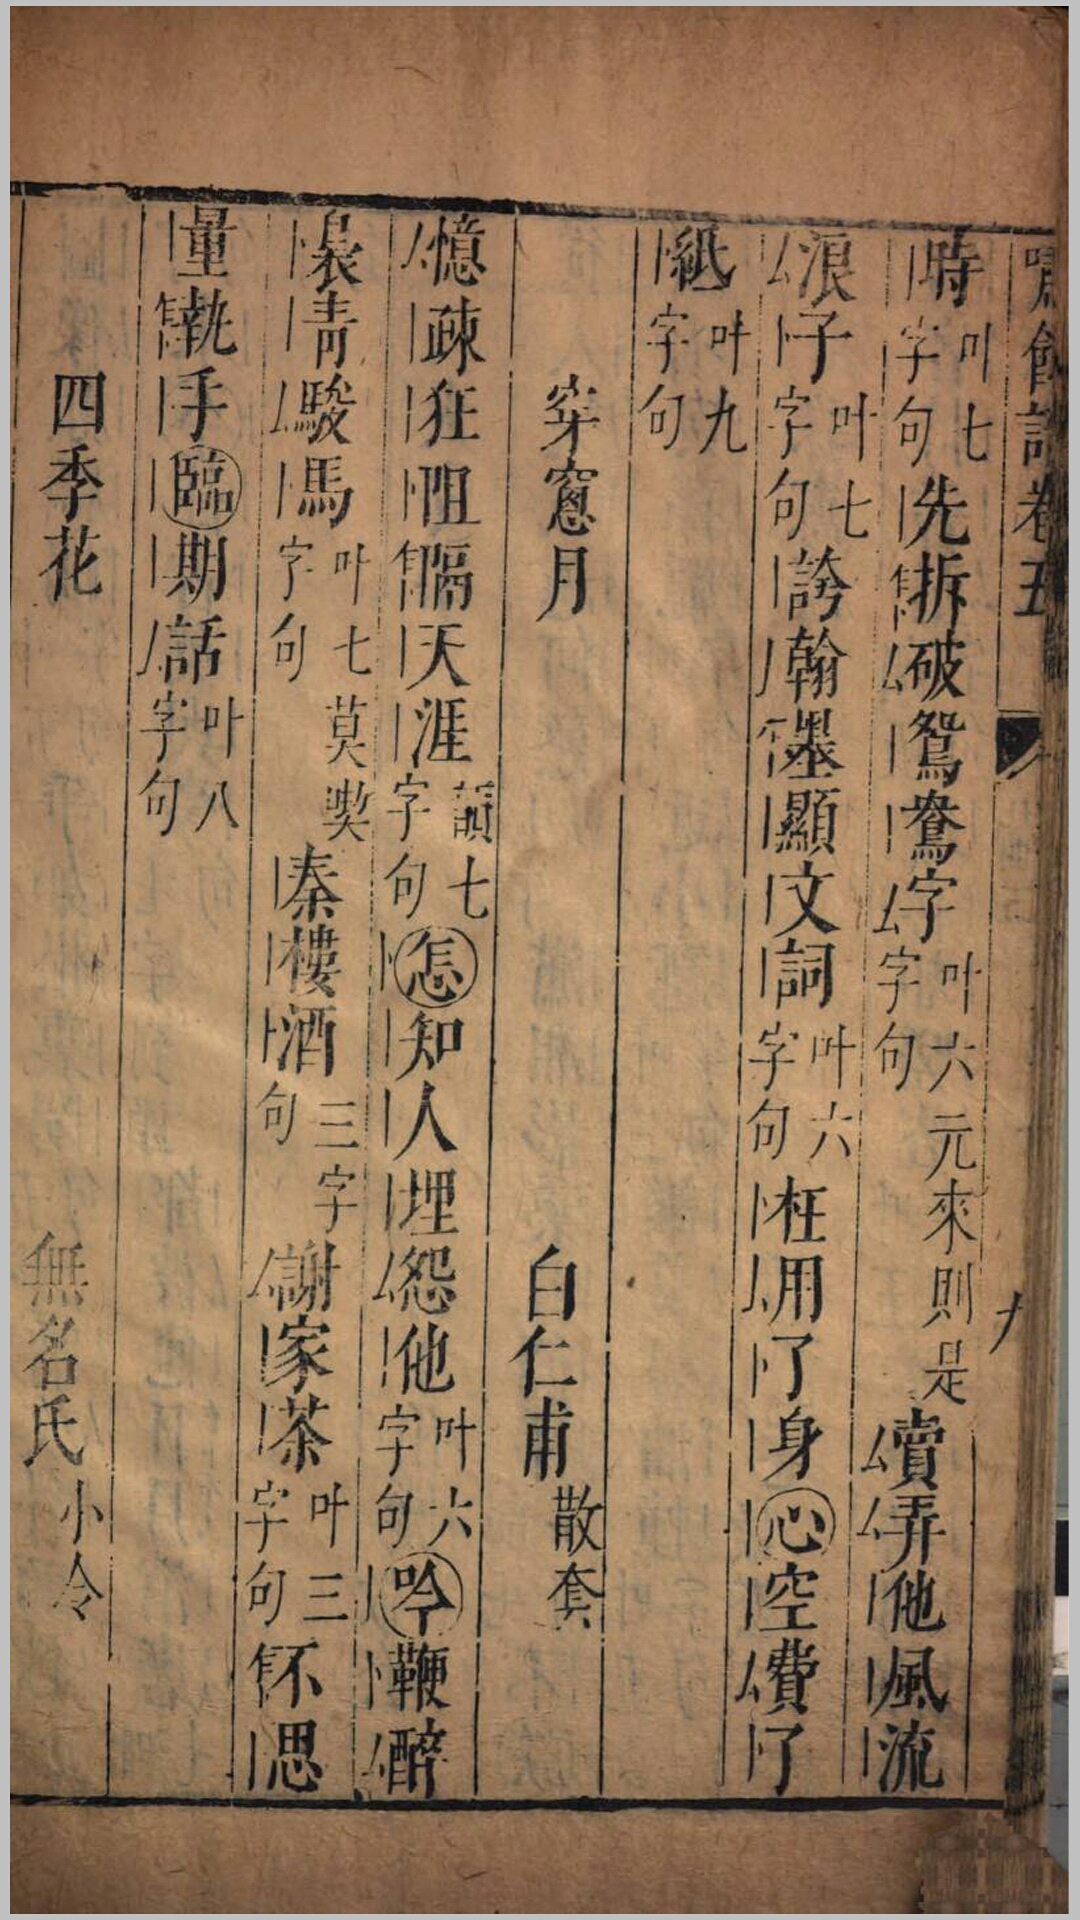 嘯餘譜卷五
時叶七字句先拆破鴛鴦字叶六字句元來則是賣弄他風流
浪子叶七字句誇翰墨顯文詞叶六字句枉用了身心空費了
紙叶九字句
穿窻月 白仁甫散套
憶疎狂阻隔天涯韻七字句怎知人埋怨他叶六字句吟鞭醉
裊青駿馬叶七字句莫喫秦樓酒三字句謝家茶叶三字句不思
量執手臨期話叶八字句
四季花 無名氏小令